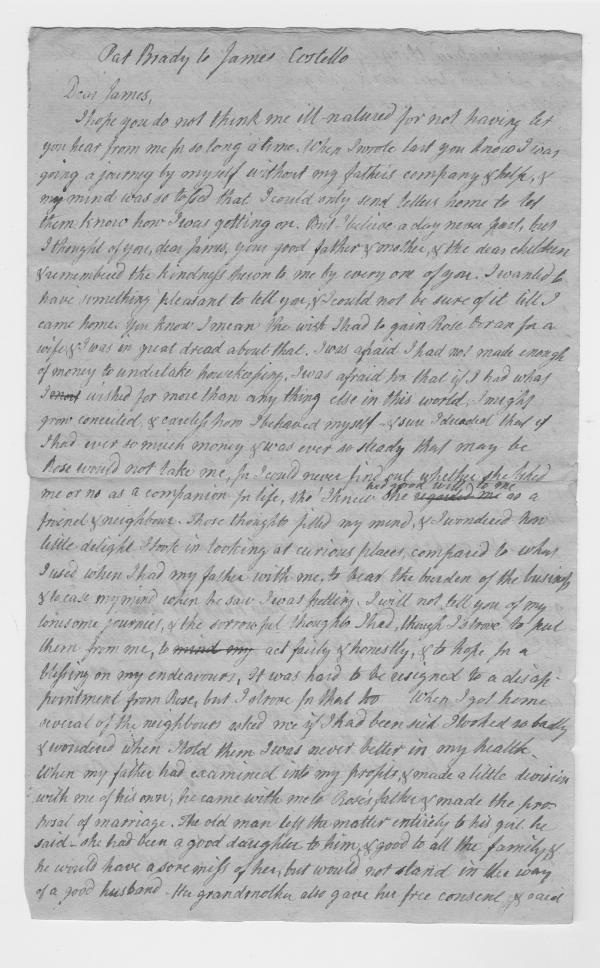 Pat Brady to James Costello
Dear James,
I hope you do not think me ill-natured for not having let
you hear from me for so long a time. When I wrote last you know I was
going a journey by myself without my father's company & help, &
my mind was so tossed that I could only send letters home to let
them know how I was getting on. But I believe a day never past, but
I thought of you, dear James, your good father & mother, & the dear children
& remembered the kindness shewn to me by every one of you. I wanted to
have something pleasant to tell you, & I could not be sure of it till I
came home. You know I mean the wish I had to gain Rose Doran for a
wife, & I was in great dread about that. I was afraid I had not made enough
of money to undertake housekeeping, I was afraid too that if I had what
I most wished for more than any thing else in this world, I might
grow conceited, & careless how I behaved myself & sure I dreaded that if
I had ever so much money & was ever so steady that may be
Rose would not take me, for I could never find out whether she liked
me or no as a companion for life, tho' I knew she had good will to me regarded me as a
friend & neighbour. Those thoughts filled my mind, & I wondered how
little delight I took in looking at curious places, compared to what
I used when I had my father with me, to bear the burden of the business
& to ease my mind when he saw I was fretting. I will not tell you of my
lonesome journies, & the sorrowful thoughts I had, though I strove to put
them from me, to mind my act fairly & honestly, & to hope for a
blessing on my endeavours, It was hard to be resigned to a disap-
pointment from Rose, but I strove for that too When I got home
several of the neighbours asked me if I had been sick I looked so badly
& wondered when I told them I was never better in my health.
When my father had examined into my profits, & made a little division
with me of his own, he came with me to Rose's father & made the pro-
posal of marriage. The old man left the matter entirely to his girl he
said she had been a good daughter to him, & good to all the family, &
he would have a sore miss of her, but would not stand in the way
of a good husband. Her grandmother also gave her free consent, & said